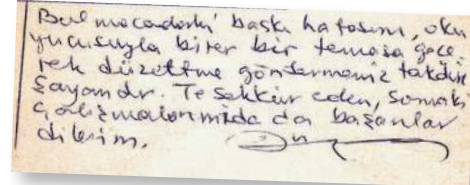 Bulmacadaki baskı hatasını, oku
yucusuyla birer bir temasa geçe
rek düzeltme göndermeniz takdire
şayandır. Teşekkür eder, sonraki
çalışmalarınızda da başarılar
dilerim.